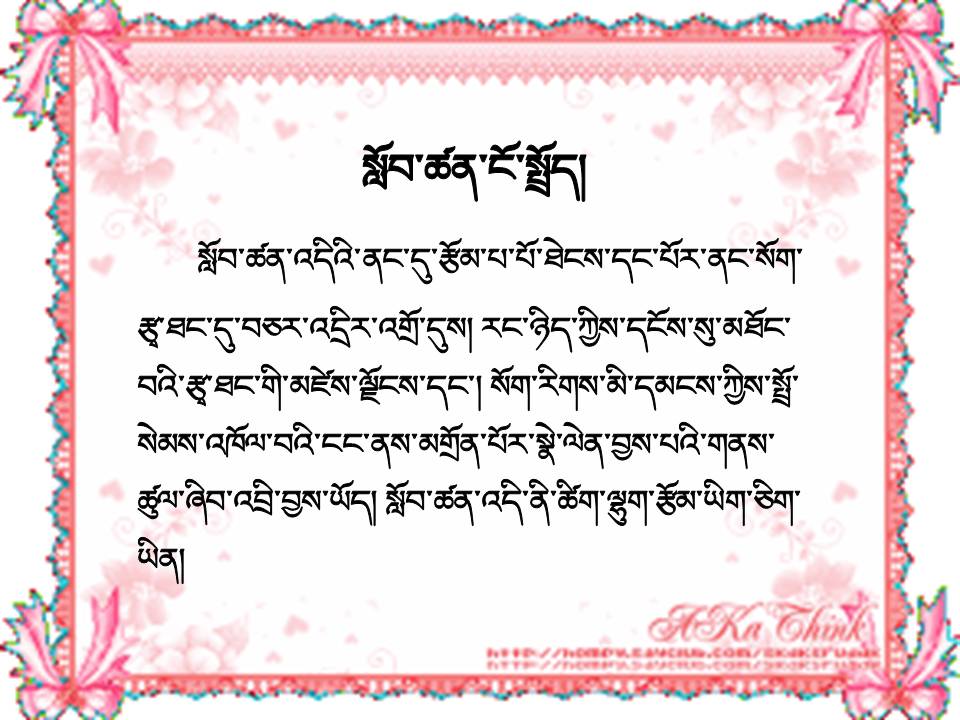 སློབ་ཚན་ངོ་སྤྲོད།
སློབ་ཚན་འདིའི་ནང་དུ་རྩོམ་པ་པོ་ཐེངས་དང་པོར་ནང་སོག་
རྩྭ་ཐང་དུ་བཅར་འདྲིར་འགྲོ་དུས། རང་ཉིད་ཀྱིས་དངོས་སུ་མཐོང་
བའི་རྩྭ་ཐང་གི་མཛེས་ལྗོངས་དང་། སོག་རིགས་མི་དམངས་ཀྱིས་སྤྲོ་
སེམས་འཁོལ་བའི་ངང་ནས་མགྲོན་པོར་སྣེ་ལེན་བྱས་པའི་གནས་
ཚུལ་ཞིབ་འབྲི་བྱས་ཡོད། སློབ་ཚན་འདི་ནི་ཚིག་ལྷུག་རྩོམ་ཡིག་ཅིག་
ཡིན།
AKa Think